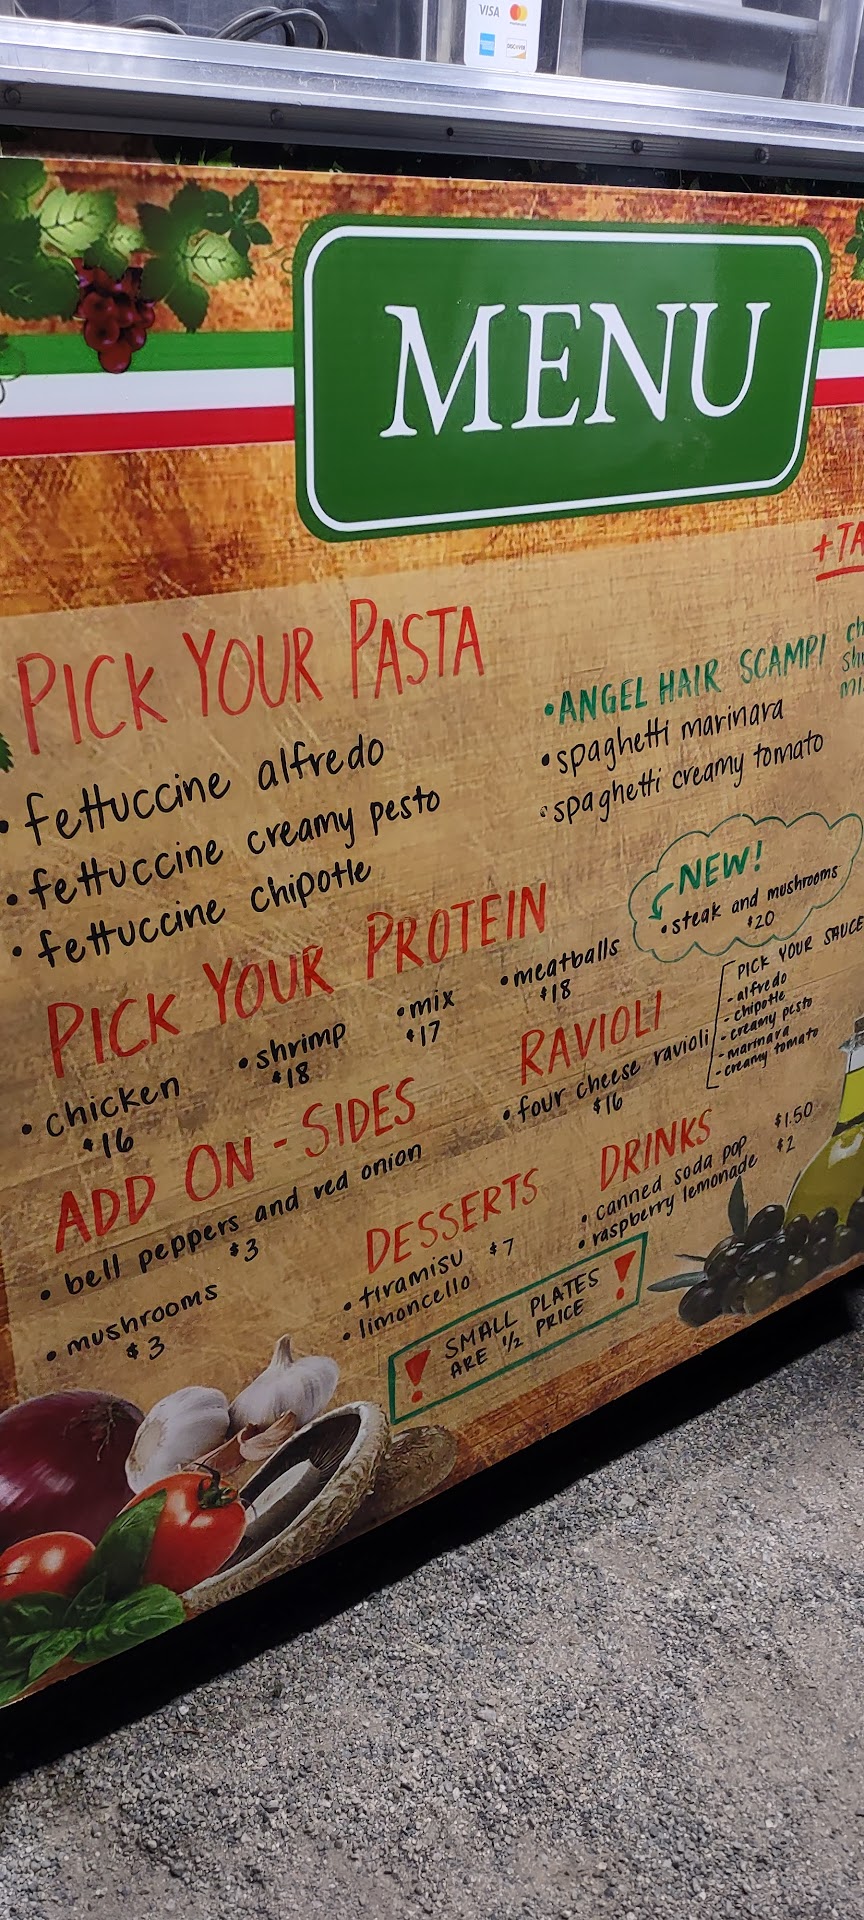 VISA
DISCOVER
MENU
+TA
PICK YOUR PASTA
• fettuccine alfredo
• fettuccine creamy pesto
• fettuccine chipotle
• ANGEL HAIR SCAMPI
• spaghetti marinara
• spaghetti creamy tomato
NEW!
• steak and mushrooms
$20
PICK YOUR PROTEIN
• chicken
$16
• shrimp
$18
• mix
$17
• meatballs
$18
RAVIOLI
• four cheese ravioli
$16
PICK YOUR SAUCE
- alfredo
- chipotle
- creamy pesto
- marinara
- creamy tomato
ADD ON - SIDES
• bell peppers and red onion
$3
• mushrooms
$3
DESSERTS
• tiramisu $7
• limoncello
DRINKS
• canned soda pop $1.50
• raspberry lemonade $2
! SMALL PLATES !
ARE 1/2 PRICE